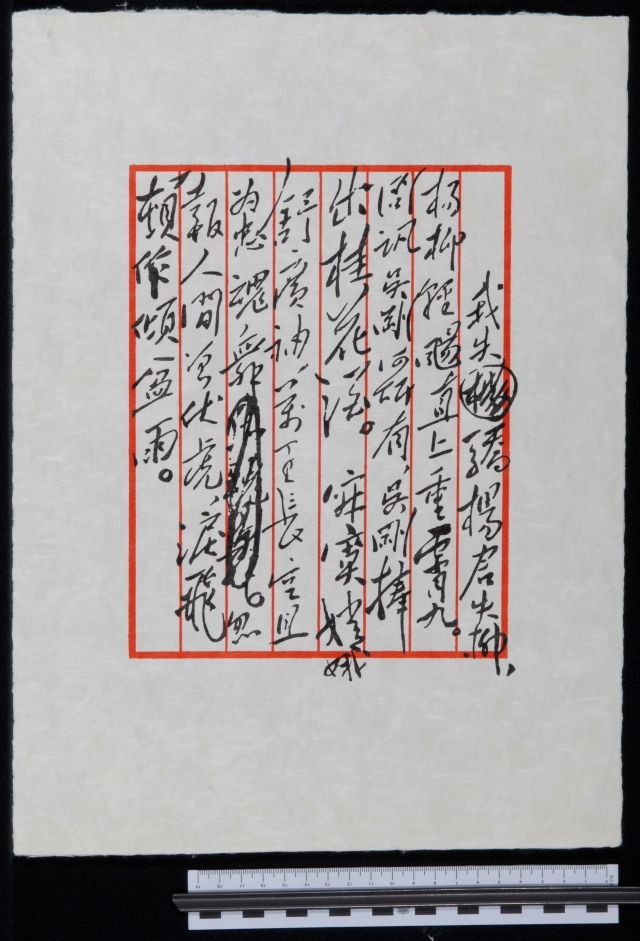 我失驕楊君失柳,
杨柳輕颺直上重霄九。
問訊吴剛何所有,吴剛捧
出桂花酒。寂寞嫦娥
舒廣袖,萬里長空且
为忠魂舞。忽
報人間曾伏虎,淚飛
頓作傾盆雨。